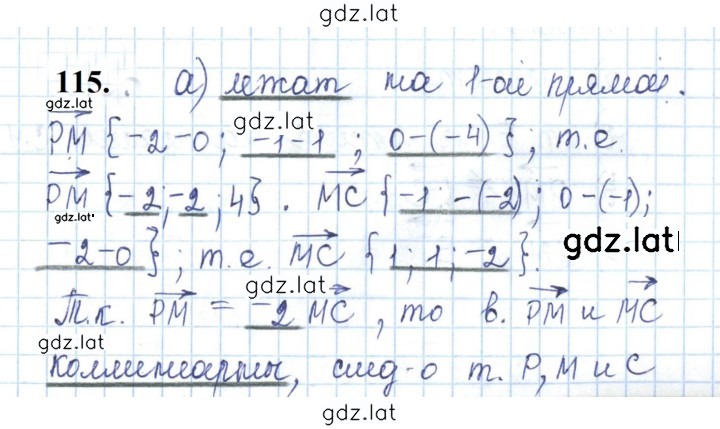 gdz.lat
115. а) лежат на 1-ой прямой.
gdz.lat
gdz.lat
PM {-2-0; -1-1; 0-(-4)}; т.е.
PM {-2;-2;4}. MC {-1-(-2); 0-(-1);
gdz.lat
-2-0}; т.е. MC {1; 1; -2}.
gdz.lat
gdz.lat
Т.к. PM = -2 MC, то в. PM и MC
gdz.lat
коллинеарны, след-о т. P, M и C
gdz.lat